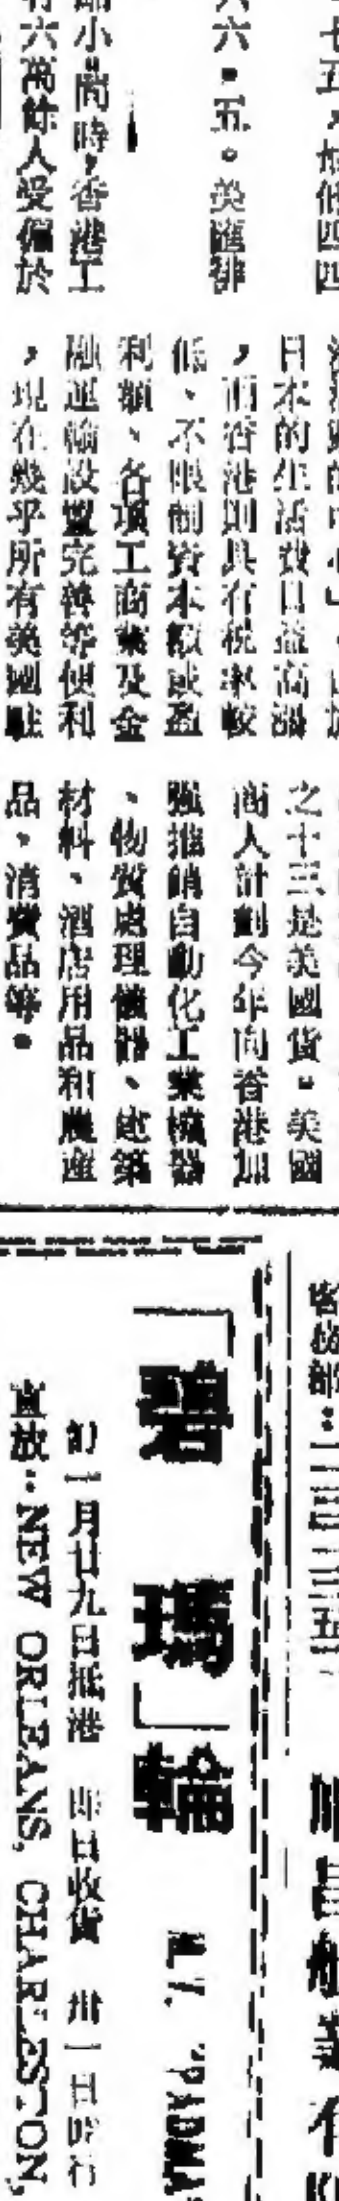 六六・五。美匯徘
縮小。同時，香港工
有六萬餘人受僱於
日本的生活費日益高漲
，而香港則具有稅率較
低、不限制資本額或盈
利額、各項工商業及金
融運輸設置完善等便利
，現在幾乎所有美國駐
之十三是美國貨。美國
商人計劃今年向香港加
強推銷自動化工業機器
、物質處理儀器、建築
材料、酒店用品和農產
品、消費品等。
「碧瑪」輪
M.V. "PADMA"
訂一月廿九日抵港 即日收貨 卅一日啓行
直放：NEW ORLEANS, CHARLESTON,